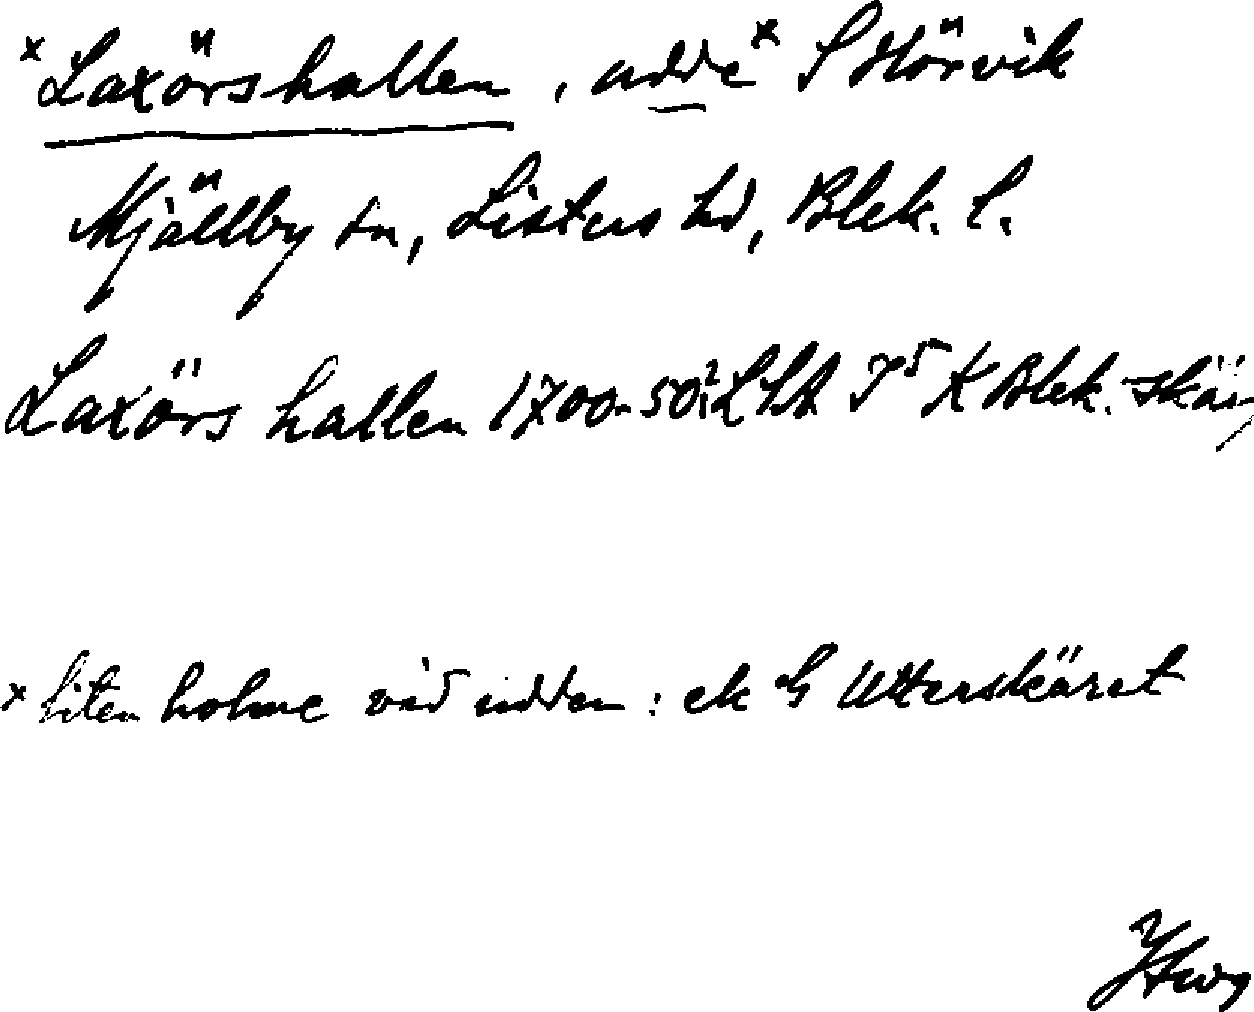 × Laxörshallen, udde × S Hörvik
Mjällby sn, Listers hd, Blek. l.
Laxörs hallen 1700-50? K Blek. skär
× liten holme vid udden : ek Utterskäret